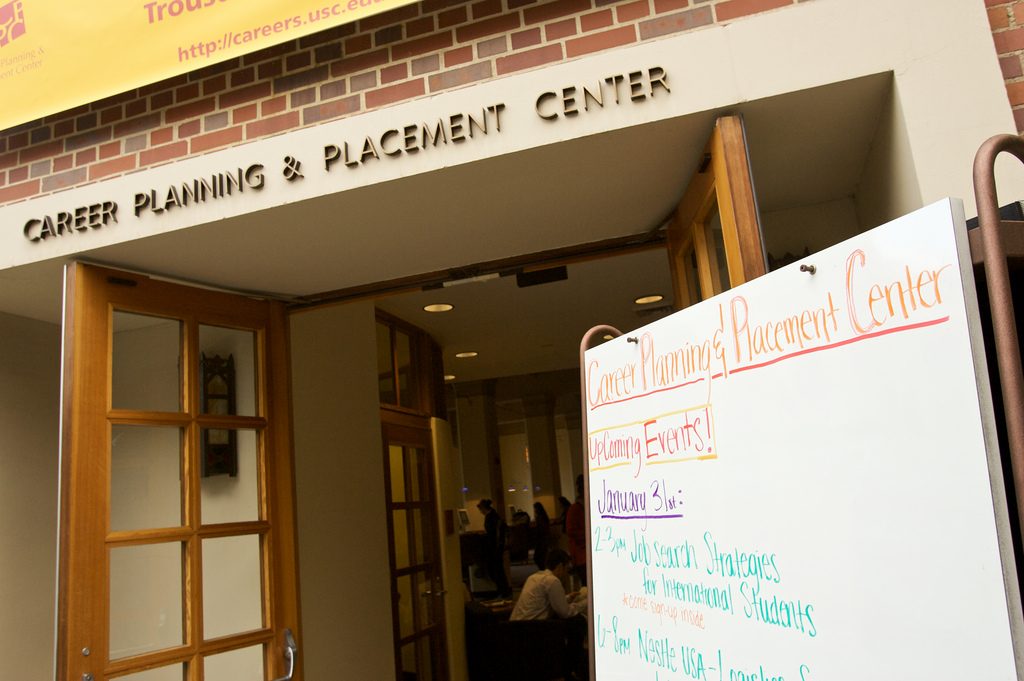 http://careers.usc.edu
Planning &
Center
CAREER PLANNING & PLACEMENT CENTER
Career Planning & Placement Center
Upcoming Events!
January 31st:
2-3pm Job Search Strategies
for International Students
*come sign-up inside
6-8pm Nestle USA-Logistics